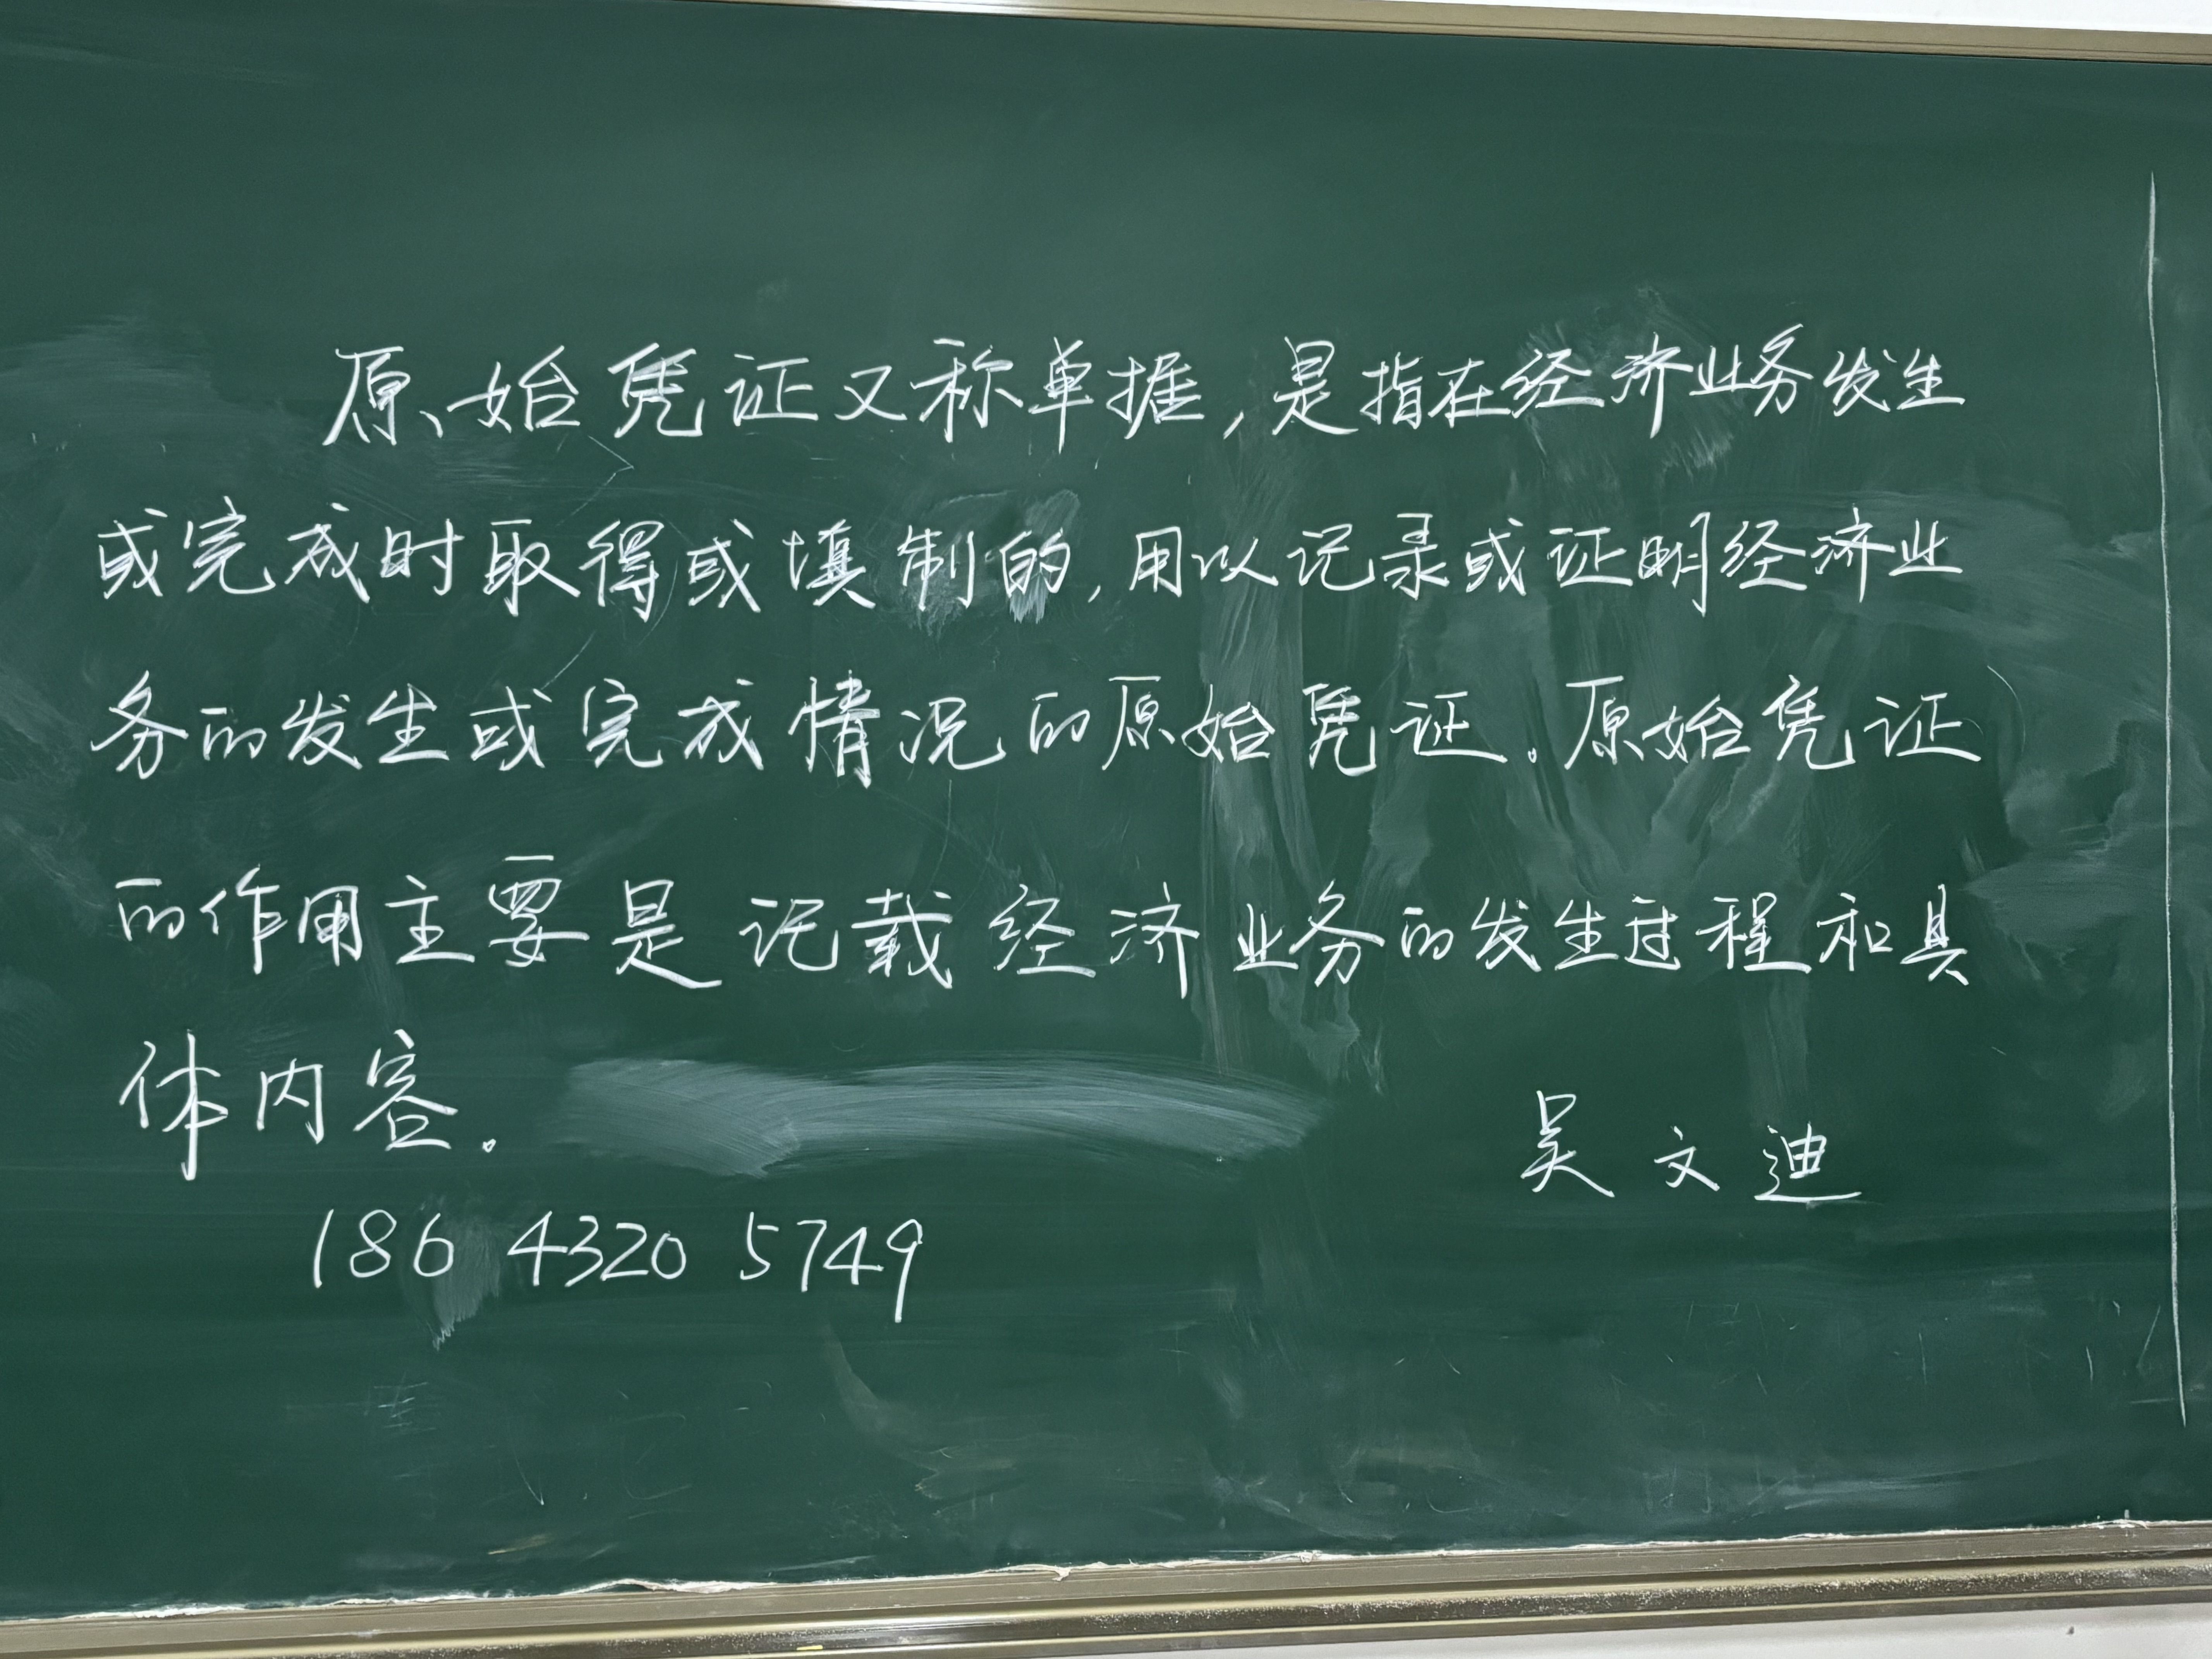 原始凭证又称单据,是指在经济业务发生
或完成时取得或填制的,用以记录或证明经济业
务的发生或完成情况的原始凭证。原始凭证
的作用主要是记载经济业务的发生过程和具
体内容。
吴文迪
186 4320 5749